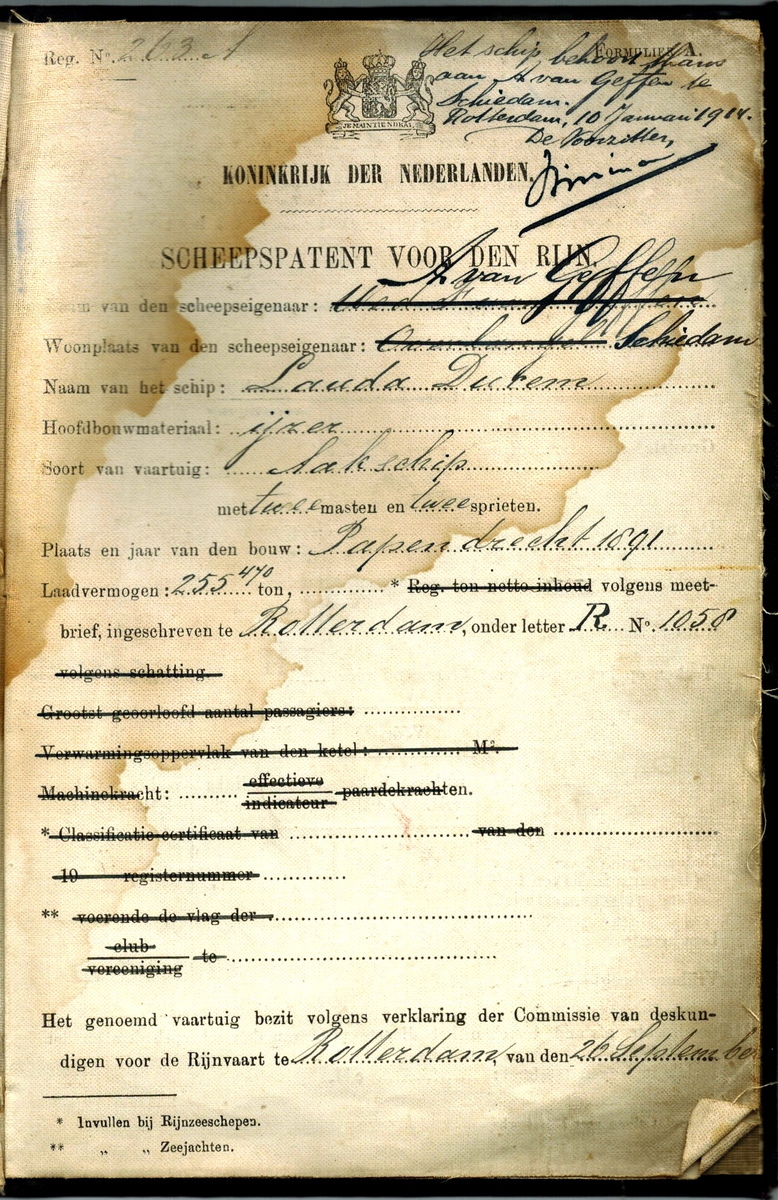 Reg. No. 263 A
FORMULIER A.
Het schip behoort thans
aan A van Geffen te
Schiedam.
Rotterdam, 10 Januari 1914.
De Voorzitter,
JE MAINTIENDRAI
KONINKRIJK DER NEDERLANDEN.
SCHEEPSPATENT VOOR DEN RIJN.
A van Geffen
Naam van den scheepseigenaar:
Woonplaats van den scheepseigenaar: Schiedam
Naam van het schip: Lauda Durem
Hoofdbouwmateriaal: ijzer
Soort van vaartuig: Aakschip
met twee masten en twee sprieten.
Plaats en jaar van den bouw: Papendrecht 1891
Laadvermogen: 255 470 ton, * Reg. ton netto inhoud volgens meet-
brief, ingeschreven te Rotterdam, onder letter R. No. 1058
volgens schatting.
Grootst geoorloofd aantal passagiers:
Verwarmingsoppervlak van den ketel: M2.
Machinekracht: effectieve indicateur paardekrachten.
* Classificatie-certificaat van van den
19 registernummer
** voerende de vlag der
club
vereeniging te
Het genoemd vaartuig bezit volgens verklaring der Commissie van deskun-
digen voor de Rijnvaart te Rotterdam, van den 26 September
* Invullen bij Rijnzeeschepen.
** „ „ Zeejachten.